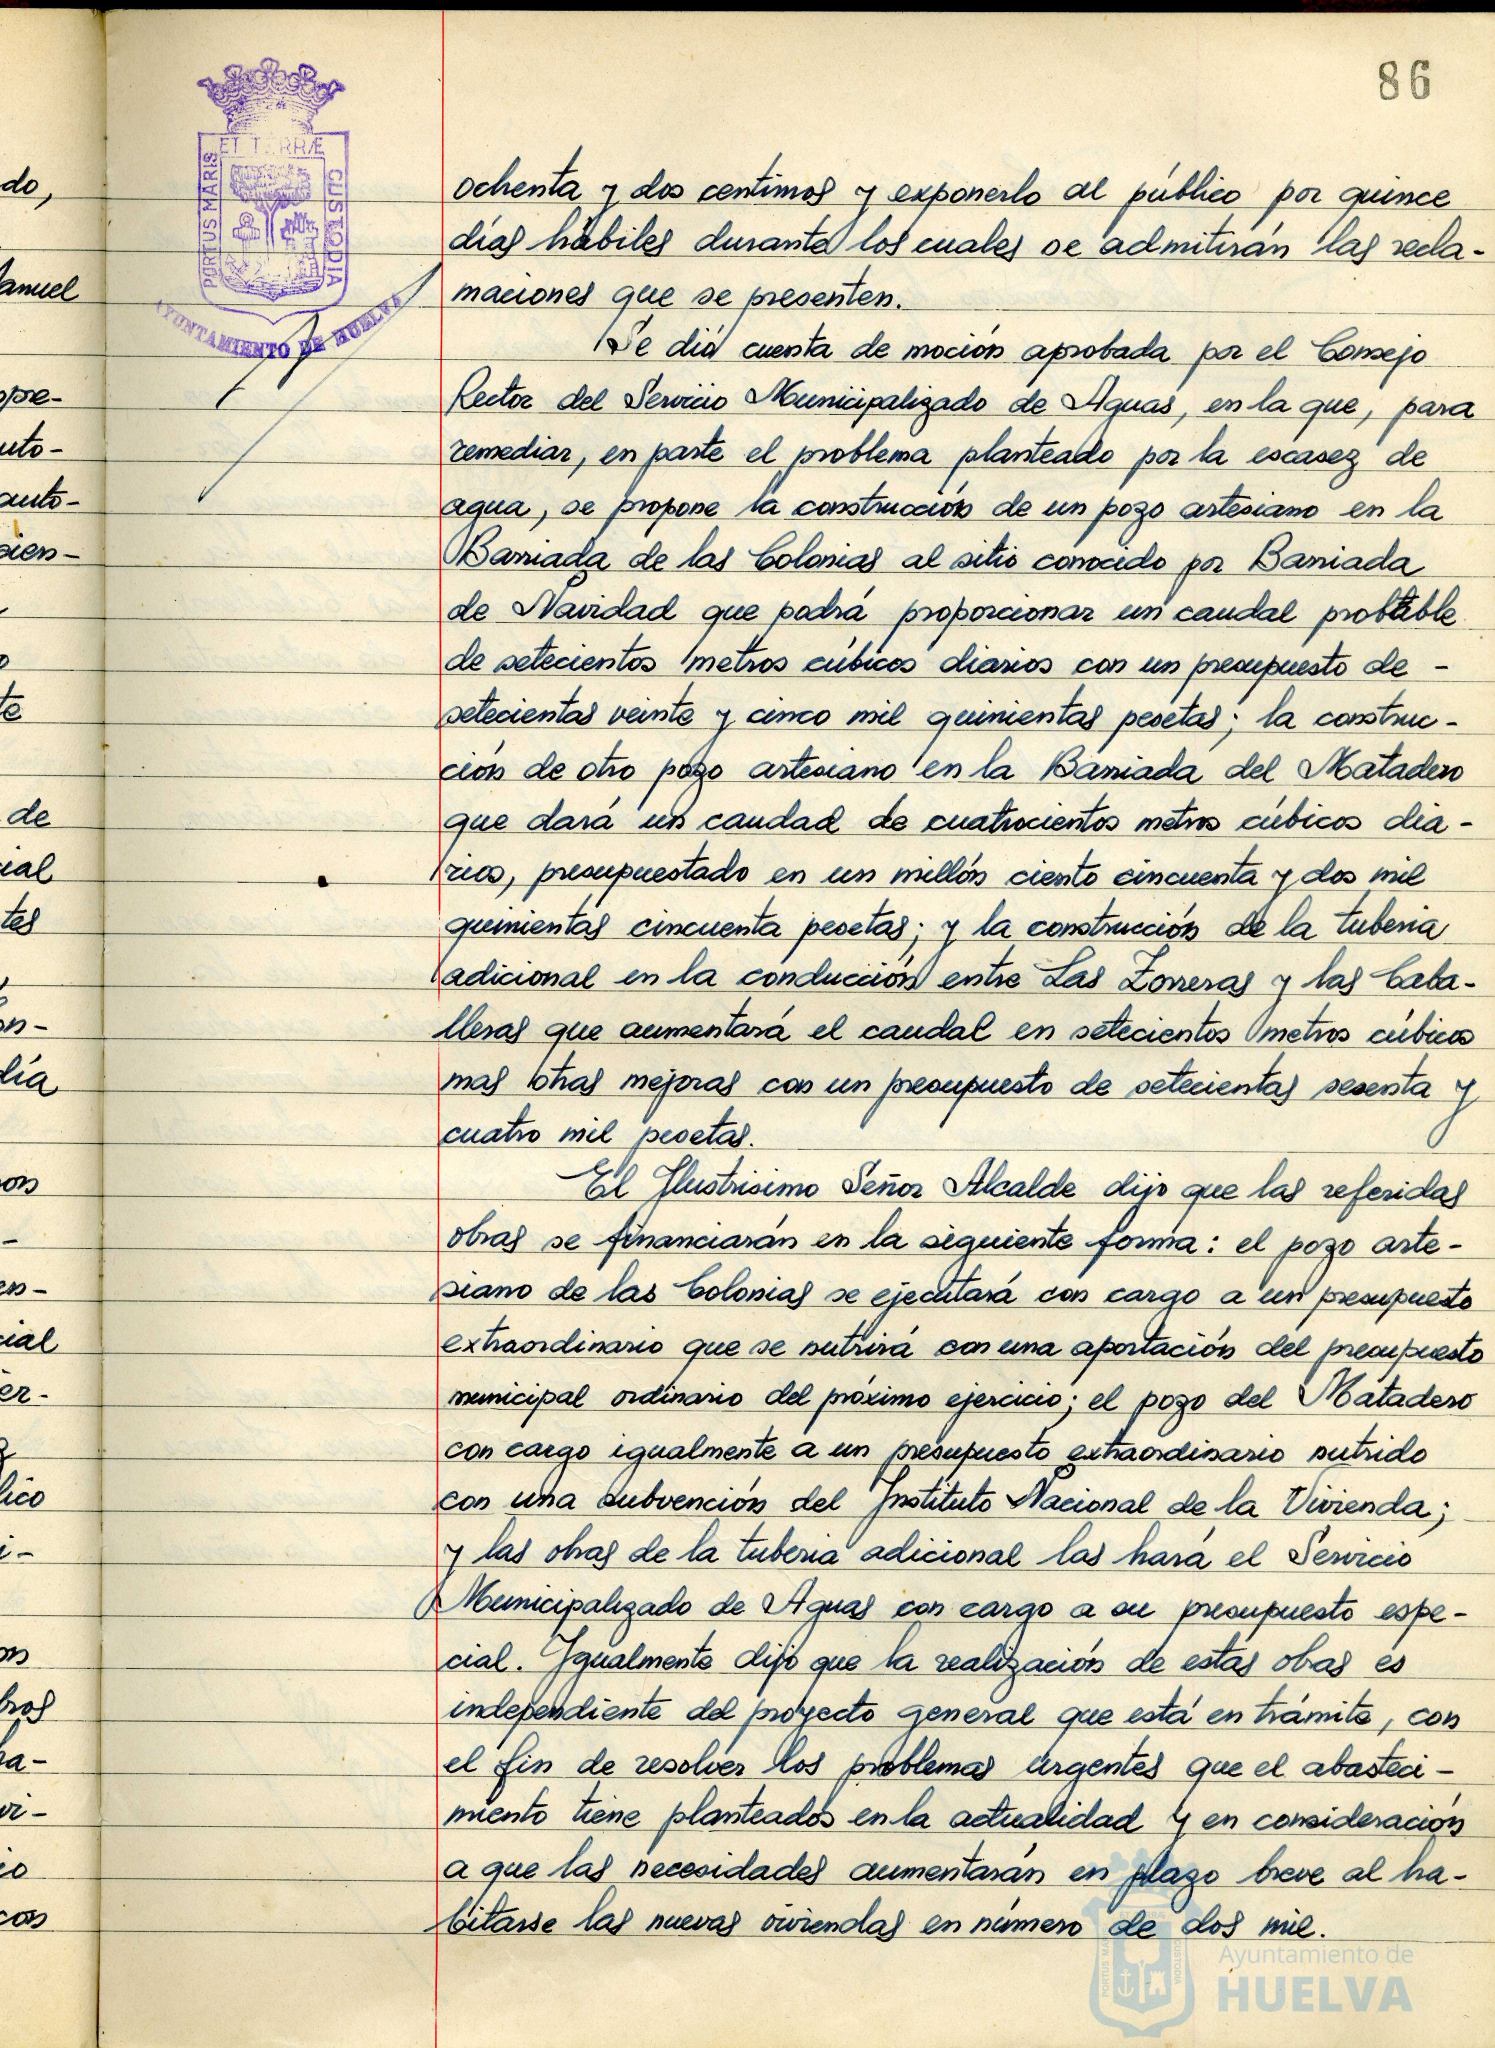 86
ET TERRÆ
PORTUS MARIS
CUSTODIA
AYUNTAMIENTO DE HUELVA
ochenta y dos centimos y exponerlo al público por quince
días hábiles durante los cuales se admitirán las recla-
maciones que se presenten.
Se dió cuenta de moción aprobada por el Consejo
Rector del Servicio Municipalizado de Aguas, en la que, para
remediar, en parte el problema planteado por la escasez de
agua, se propone la construcción de un pozo artesiano en la
Barriada de las Colonias al sitio conocido por Barriada
de Navidad que podrá proporcionar un caudal probable
de setecientos metros cúbicos diarios con un presupuesto de -
setecientas veinte y cinco mil quinientas pesetas; la construc-
ción de otro pozo artesiano en la Barriada del Matadero
que dará un caudad de cuatrocientos metros cúbicos dia-
rios, presupuestado en un millón ciento cincuenta y dos mil
quinientas cincuenta pesetas; y la construcción de la tuberia
adicional en la conducción entre Las Zorreras y las Caba-
lleras que aumentará el caudal en setecientos metros cúbicos
mas otras mejoras con un presupuesto de setecientas sesenta y
cuatro mil pesetas.
El Ilustrisimo Señor Alcalde dijo que las referidas
obras se financiarán en la siguiente forma: el pozo arte-
siano de las Colonias se ejecutará con cargo a un presupuesto
extraordinario que se nutrirá con una aportación del presupuesto
municipal ordinario del próximo ejercicio; el pozo del Matadero
con cargo igualmente a un presupuesto extraordinario nutrido
con una subvención del Instituto Nacional de la Vivienda;
y las obras de la tuberia adicional las hará el Servicio
Municipalizado de Aguas con cargo a su presupuesto espe-
cial. Igualmente dijo que la realización de estas obas es
independiente del proyecto general que está en trámite, con
el fin de resolver los problemas urgentes que el abasteci-
miento tiene planteados en la actualidad y en consideración
a que las necesidades aumentarán en plazo breve al ha-
bitarse las nuevas viviendas en número de dos mil.
Ayuntamiento de
HUELVA